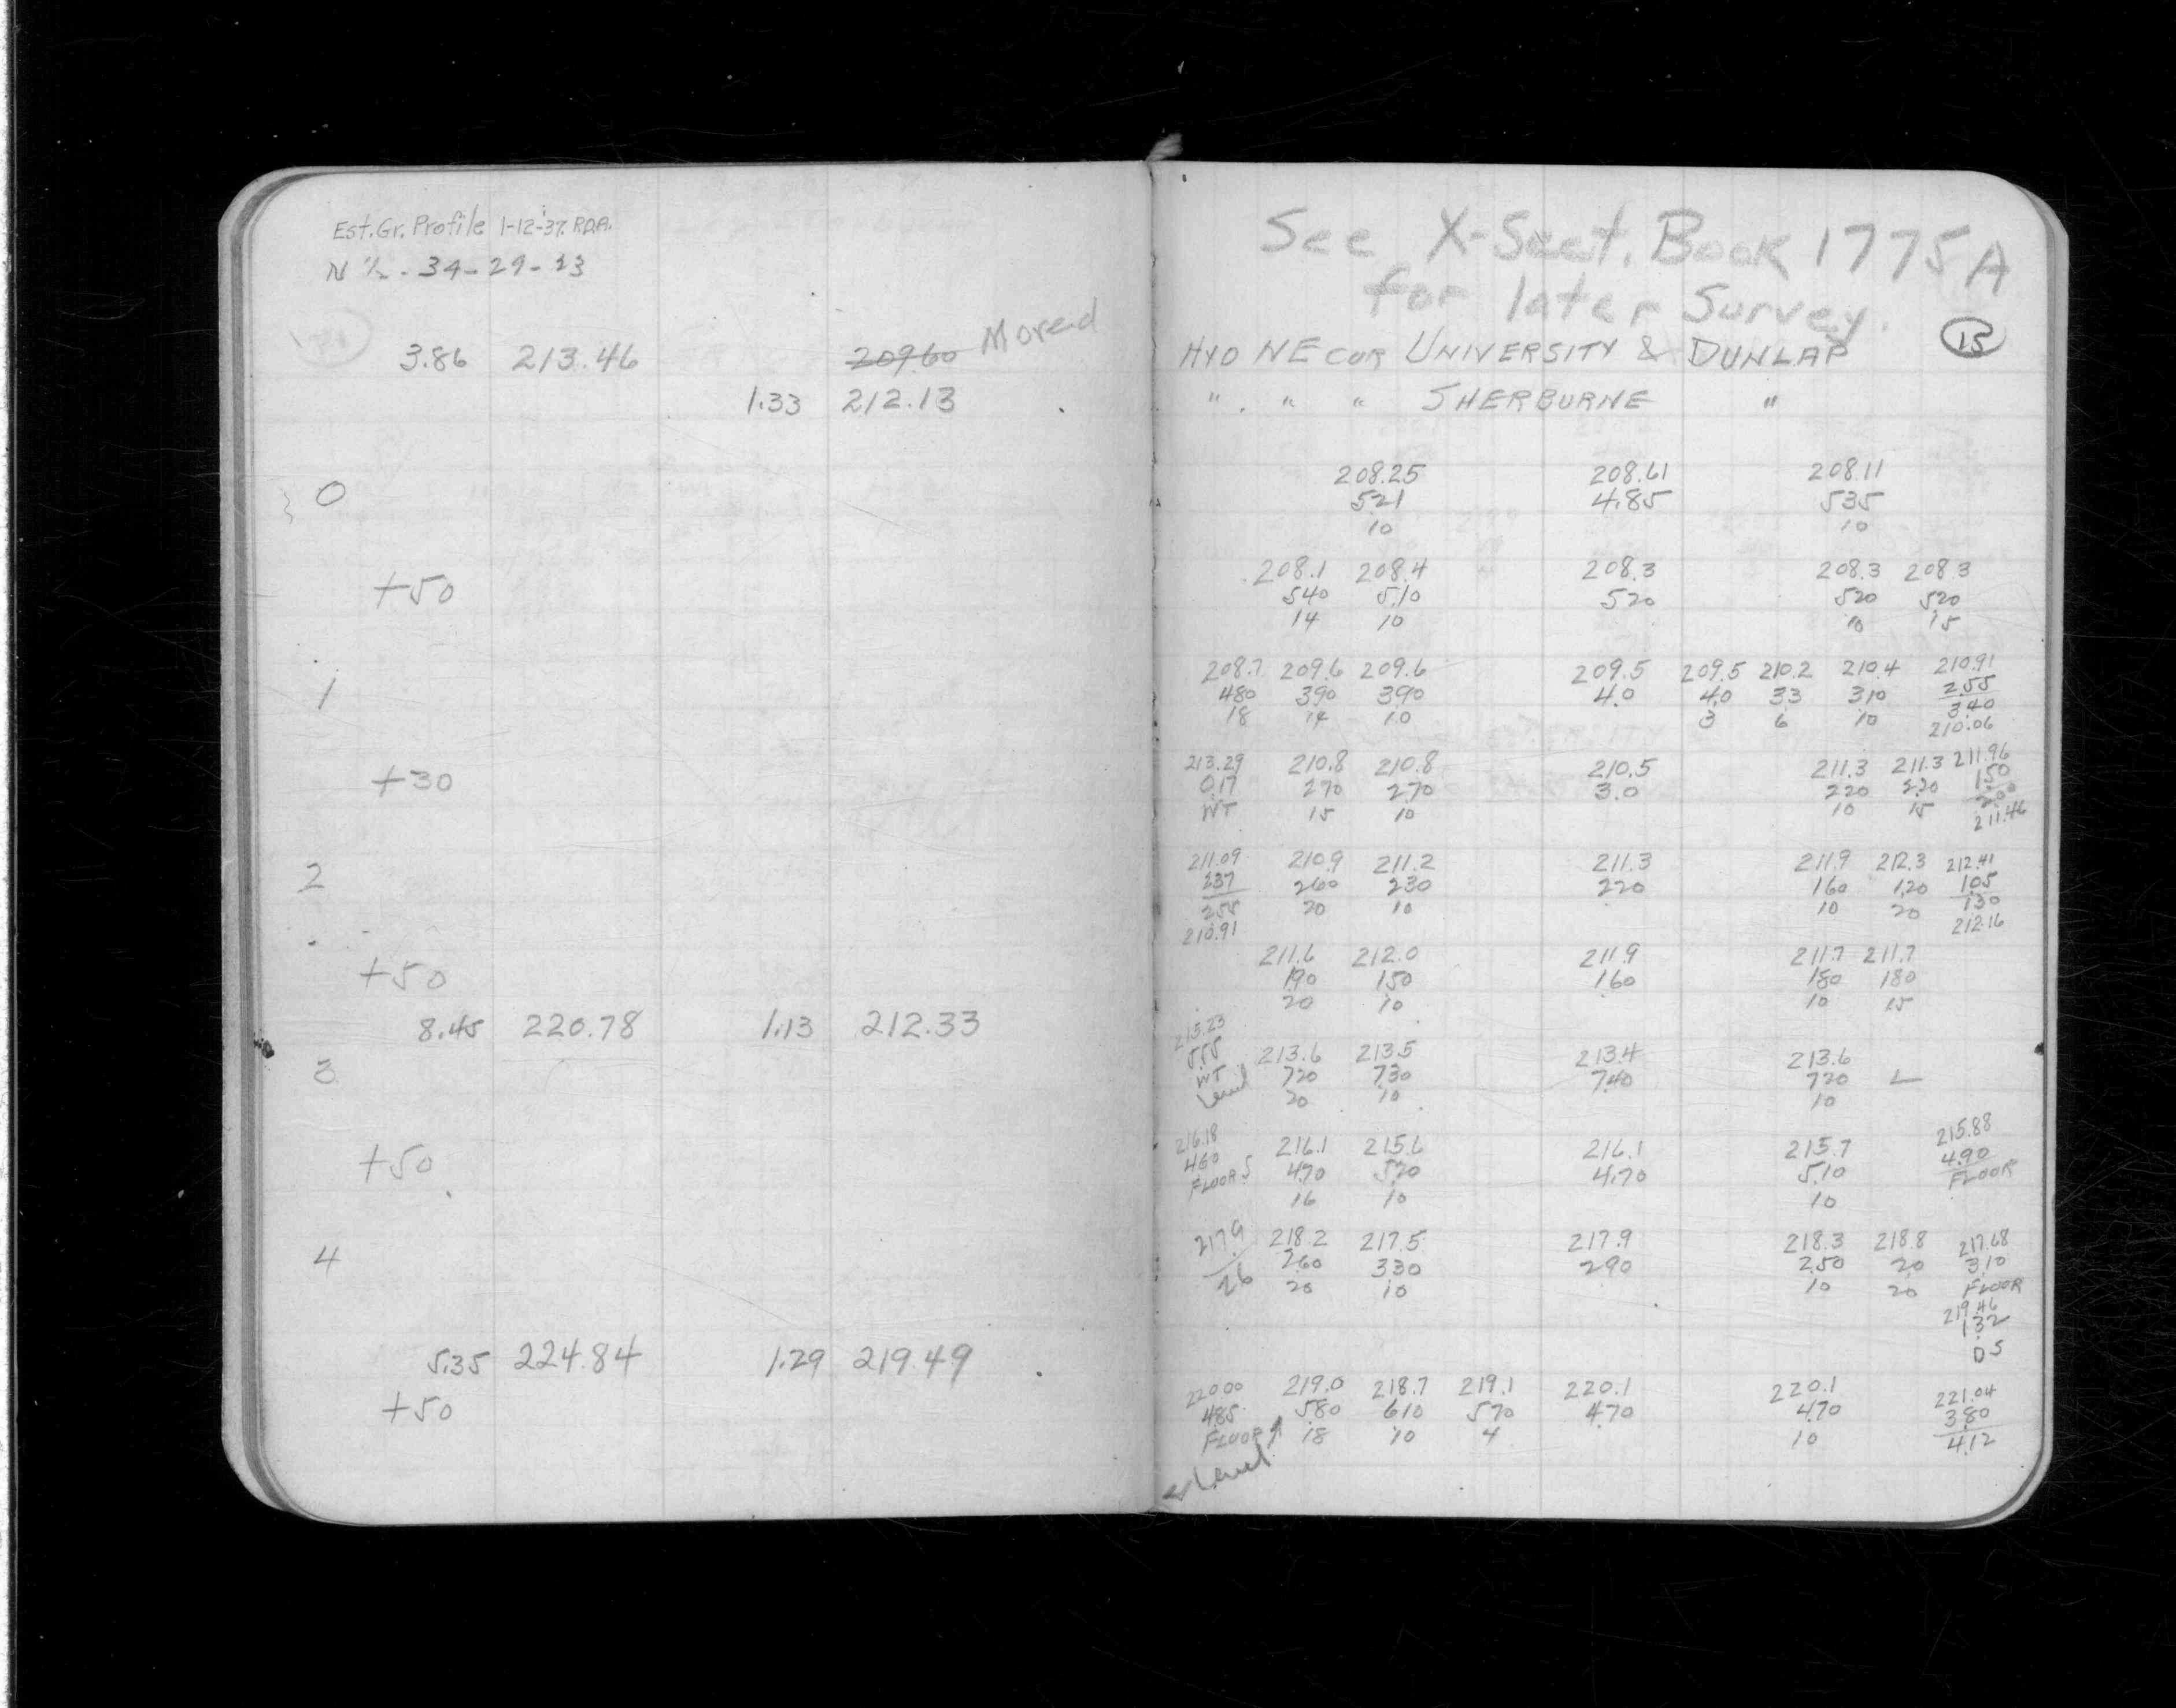 Est. Gr. Profile 1-12-37. R.D.A.
N ½ - 34-29-23
3.86 213.46 209.60 Moved
1.33 212.13
0
+50
1
+30
2
+50
8.45 220.78 1.13 212.33
3
+50
4
5.35 224.84 1.29 219.49
+50
See X-Sect. Book 1775A
for later Survey.
15
HYD NE COR UNIVERSITY & DUNLAP
" . " " SHERBURNE "
208.25 208.61 208.11
521 4.85 535
10 10
208.1 208.4 208.3 208.3 208.3
540 5.10 520 520 520
14 10 10 15
208.7 209.6 209.6 209.5 209.5 210.2 210.4 210.91
480 390 390 4.0 4.0 33 310 2.55
18 14 10 3 6 10 3.40
210.06
213.29 210.8 210.8 210.5 211.3 211.3 211.96
0.17 270 270 3.0 220 220 150
WT 15 10 10 15 200
211.46
211.09 210.9 211.2 211.3 211.9 212.3 212.41
237 260 230 220 160 1.20 1.05
255 20 10 10 20 130
210.91 212.16
211.6 212.0 211.9 211.7 211.7
190 150 160 180 180
20 10 10 15
215.23
5.55 213.6 213.5 213.4 213.6
WT 720 730 740 720 L
Level 20 10 10
216.18 216.1 215.6 216.1 215.7 215.88
460 470 520 4.70 5.10 4.90
FLOOR S 16 10 10 FLOOR
217.9 218.2 217.5 217.9 218.3 218.8 217.68
26 260 330 290 250 20 310
20 10 10 20 FLOOR
219.46
132
DS
220.00 219.0 218.7 219.1 220.1 220.1 221.04
485 580 610 570 470 470 380
FLOOR 18 10 4 10 4.12
Level